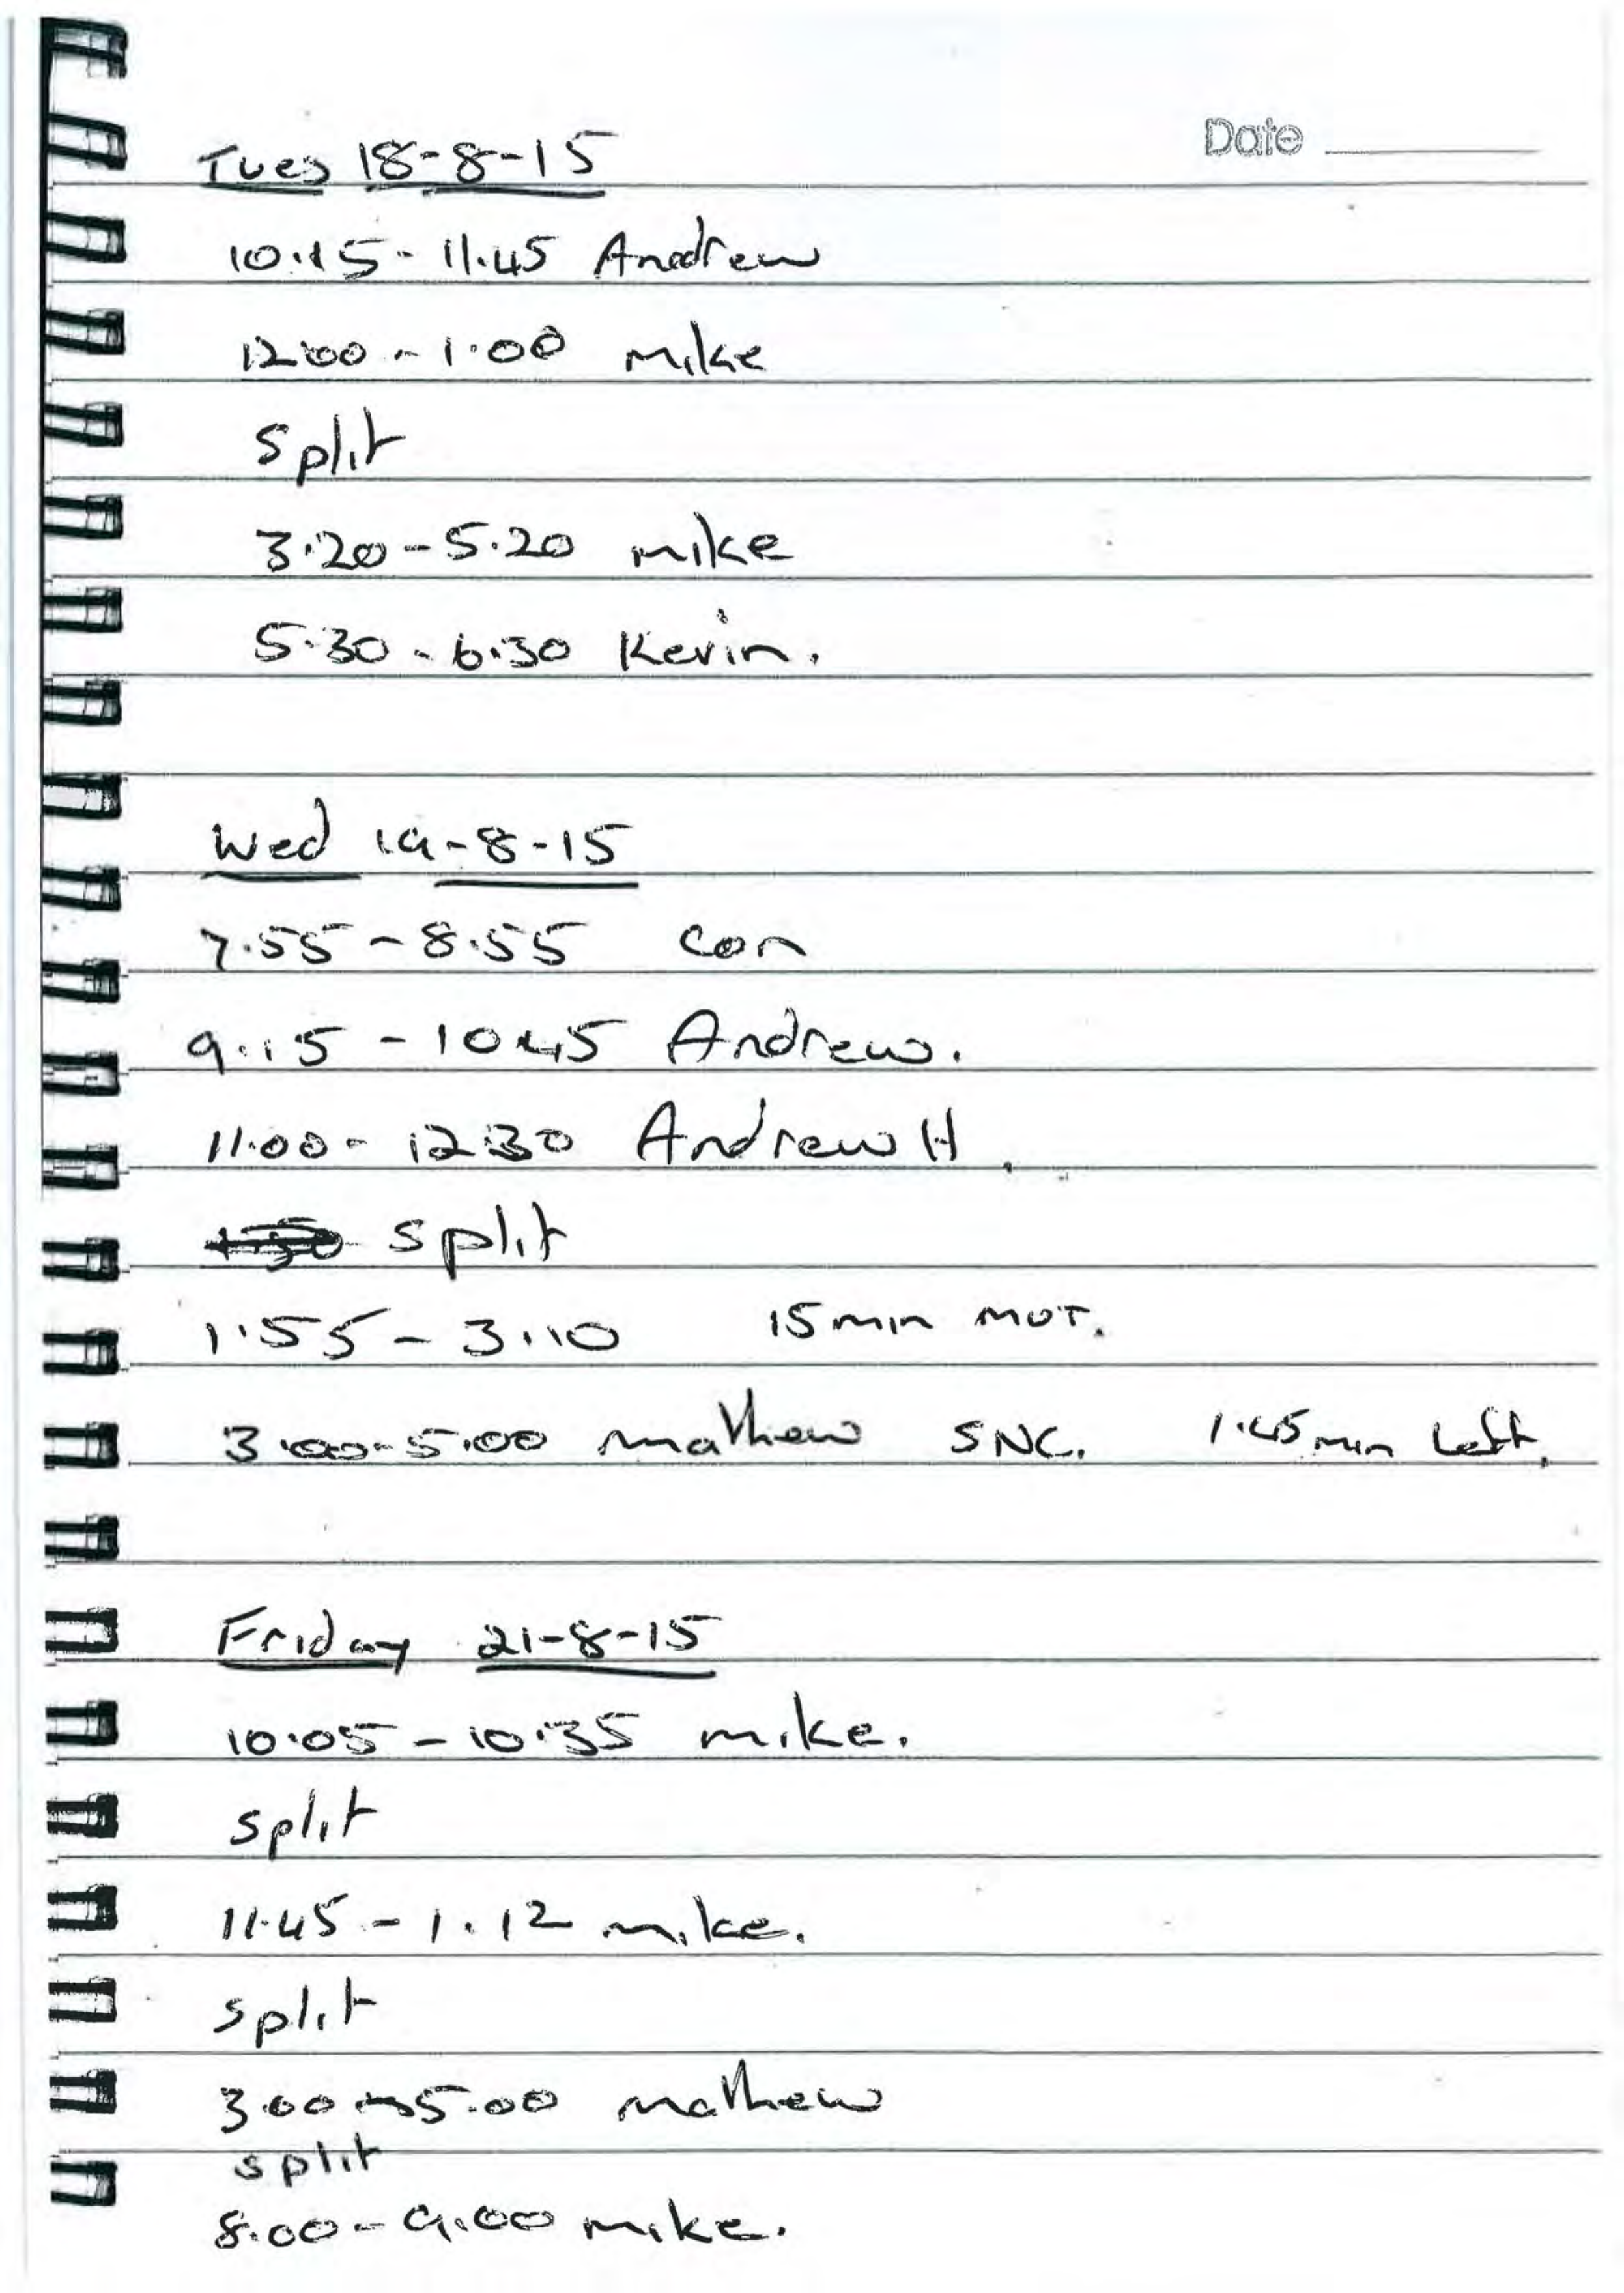 Date
Tues 18-8-15
10.15 - 11.45 Andrew
12.00 - 1.00 mike
split
3.20 - 5.20 mike
5.30 - 6.30 Kevin.
Wed 19-8-15
7.55 - 8.55 con
9.15 - 10.45 Andrew.
11.00 - 12.30 Andrew H.
split
1.55 - 3.10 15 min MUT.
3.00 - 5.00 mathew SNC. 1.45 min Left.
Friday 21-8-15
10.05 - 10.35 mike.
split
11.45 - 1.12 mike.
split
3.00 - 5.00 mathew
split
8.00 - 9.00 mike.